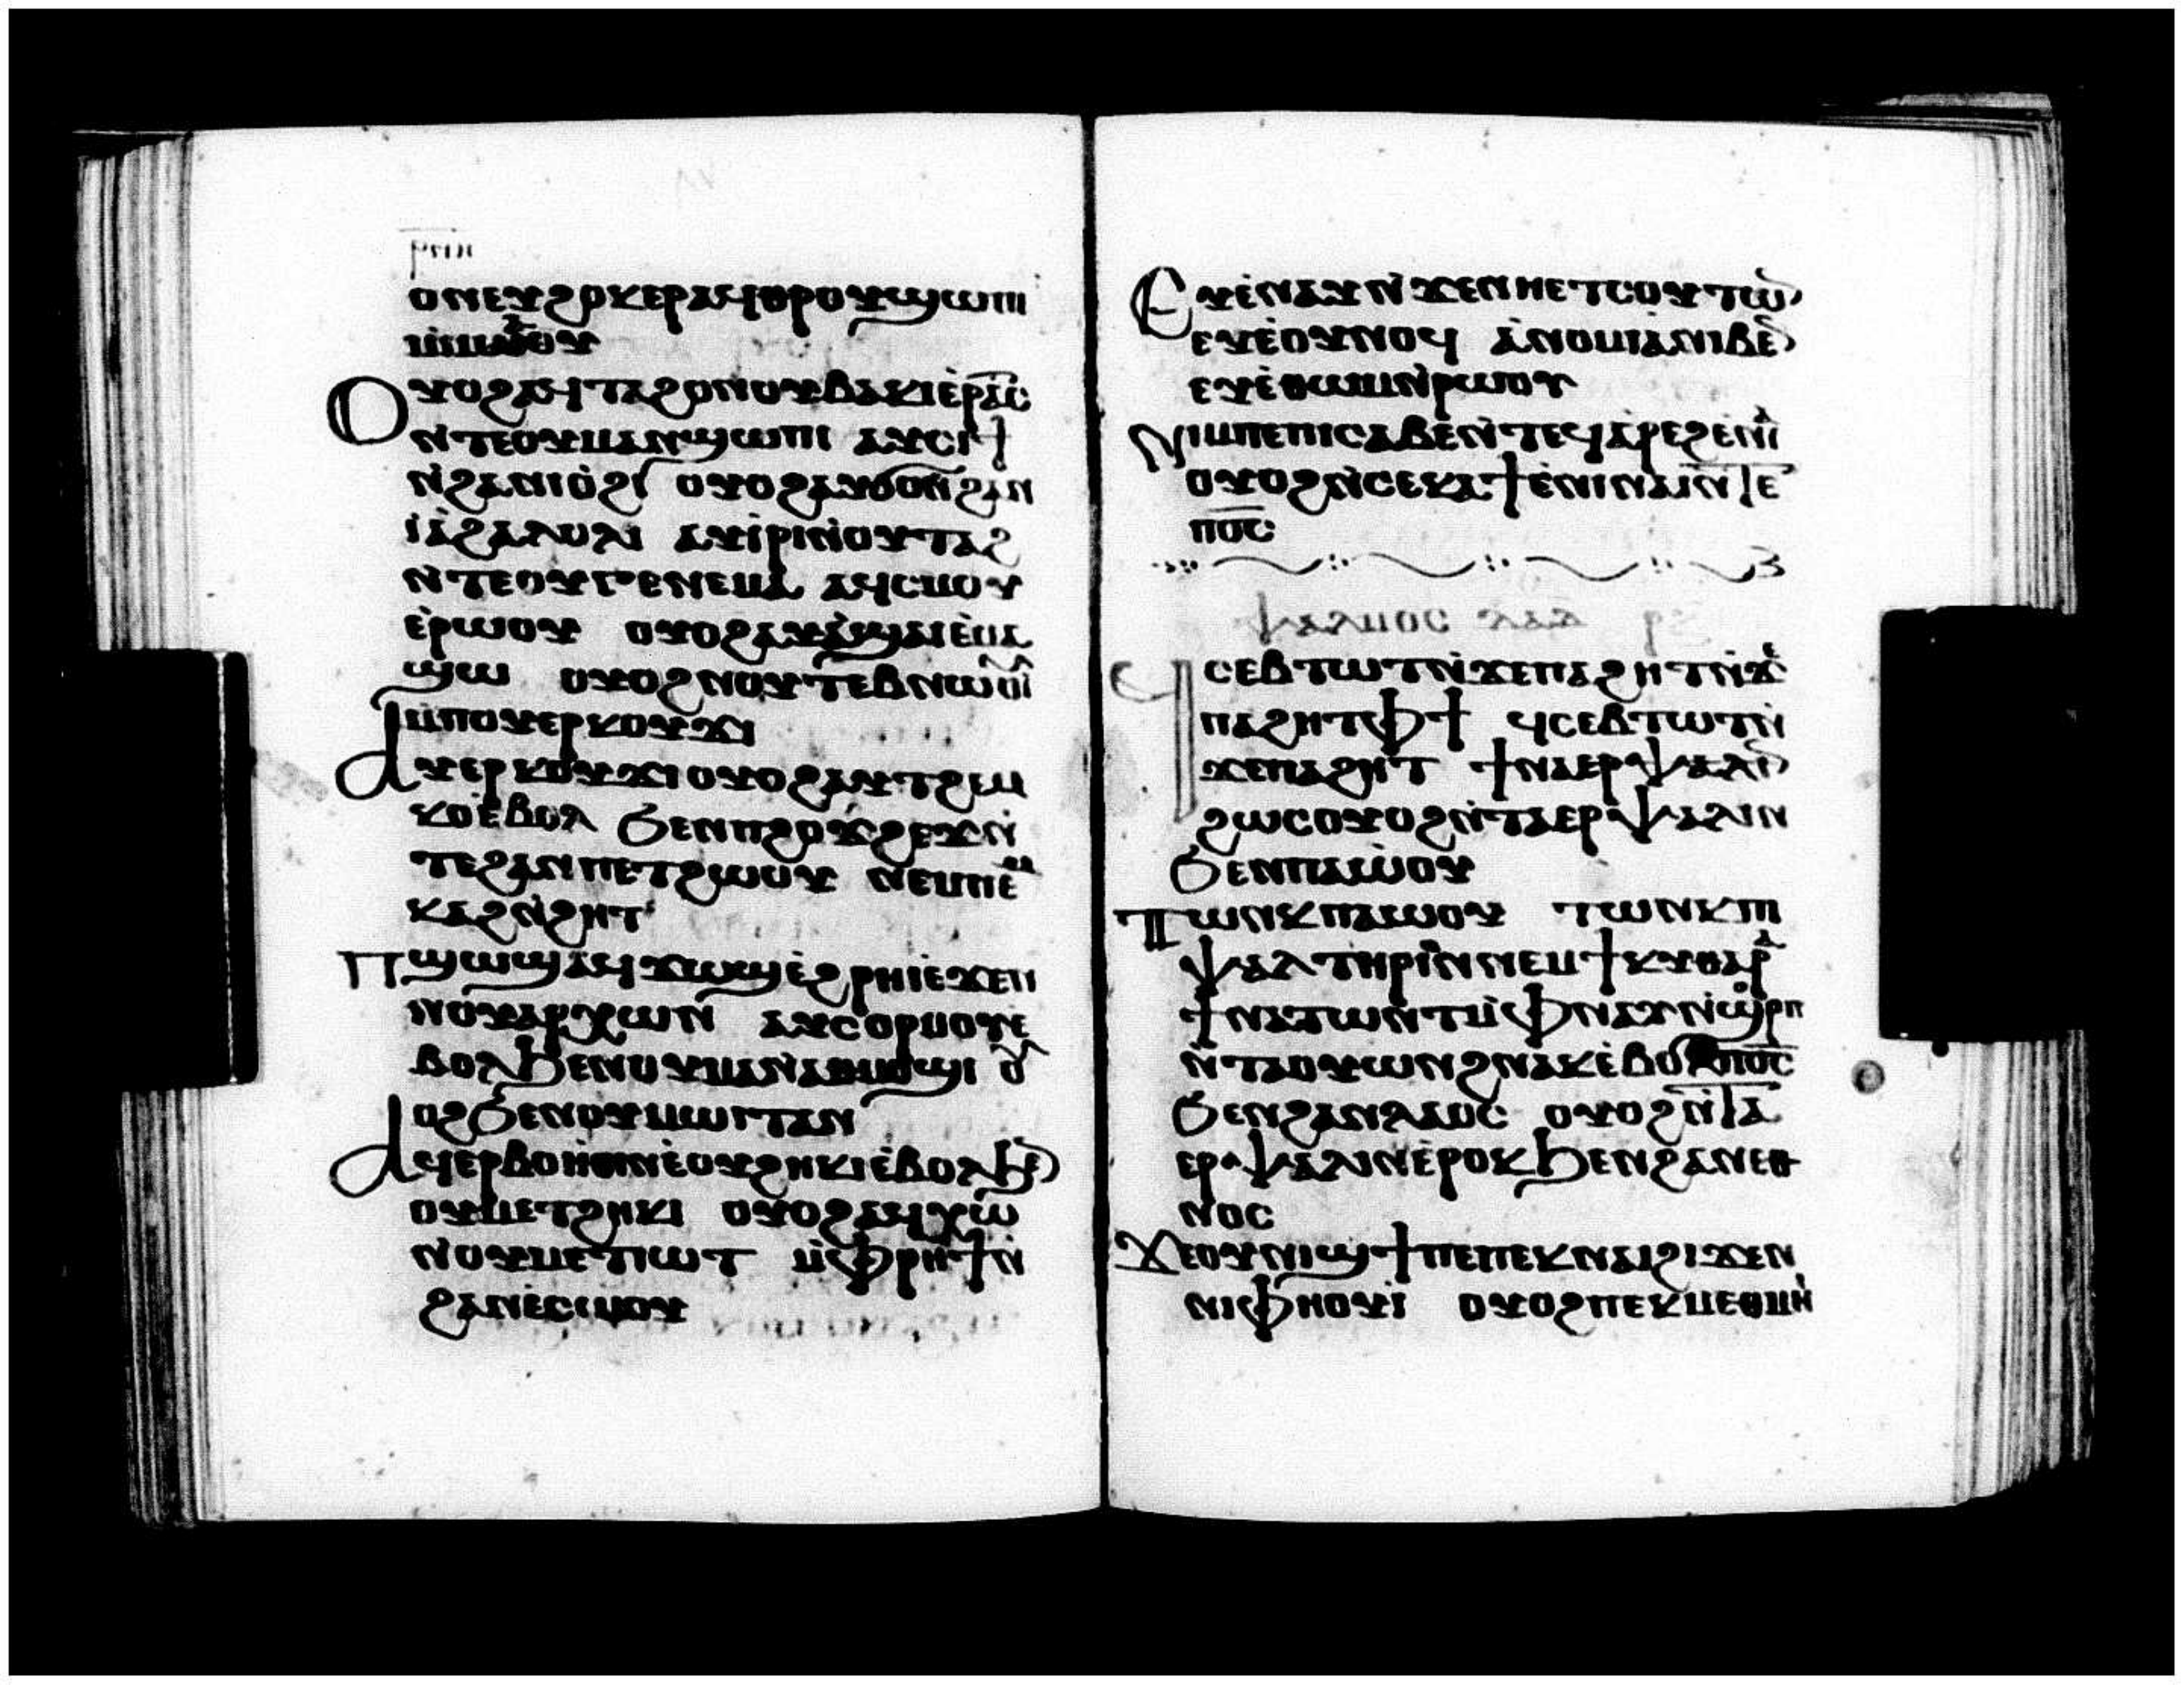 ⲟⲛⲉⲩϩⲟⲕⲉⲣ ⲁϥⲑⲣⲟⲩϣⲱⲡⲓ
ⲙ̀ⲙⲁⲩ
Ⲟⲩⲟϩ ⲁϥⲧⲁϩⲟ ⲛⲟⲩⲃⲁⲕⲓ ⲉ̀ⲣⲁⲧⲥ
ⲛ̀ⲧⲉⲟⲩⲙⲁⲛϣⲱⲡⲓ ⲁⲩⲥⲓϯ
ⲛ̀ϩⲁⲛⲓⲟ̀ϩⲓ ⲟⲩⲟϩ ⲁⲩϭⲟ ⲛ̀ϩⲁⲛ
ⲓⲁ̀ϩⲁⲗⲟⲗⲓ ⲁⲩⲓ̀ⲣⲓ ⲛ̀ⲟⲩⲧⲁϩ
ⲛ̀ⲧⲉⲟⲩⲅⲉⲛⲉⲙⲁ ⲁϥⲥⲙⲟⲩ
ⲉ̀ⲣⲱⲟⲩ ⲟⲩⲟϩ ⲁⲩⲁ̀ϣⲁⲓ ⲉ̀ⲙⲁ
ϣⲱ ⲟⲩⲟϩ ⲛⲟⲩⲧⲉⲃⲛⲱⲟⲩⲓ̀
ⲙⲡⲟⲩⲉⲣⲕⲟⲩϫⲓ
Ⲁⲩⲉⲣⲕⲟⲩϫⲓ ⲟⲩⲟϩ ⲁⲩⲧϩⲉⲙ
ⲕⲟ ⲉ̀ⲃⲟⲗ ϧⲉⲛ ⲡϩⲟϫϩⲉϫ ⲛ̀
ⲧⲉϩⲁⲛⲡⲉⲧϩⲱⲟⲩ ⲛⲉⲙ ⲡⲉⲙ
ⲕⲁϩ ⲛ̀ϩⲏⲧ
Ⲡϣⲱϣ ⲁϥϫⲱϣ ⲉ̀ϩⲣⲏⲓ ⲉ̀ϫⲉⲛ
ⲛⲟⲩⲁⲣⲭⲱⲛ ⲁⲩⲥⲟⲣⲙⲟⲩ ⲉ̀
ⲃⲟⲗ ϧⲉⲛ ⲟⲩⲙⲁⲛ̀ⲁⲑⲙⲟϣⲓ ⲟⲩ
ⲟϩ ϧⲉⲛ ⲟⲩⲙⲱⲓⲧ ⲁⲛ
Ⲁϥⲉⲣⲃⲟⲏⲑⲓⲛ ⲉ̀ⲟⲩϩⲏⲕⲓ ⲉ̀ⲃⲟⲗ ϧⲉⲛ
ⲟⲩⲙⲉⲧϩⲏⲕⲓ ⲟⲩⲟϩ ⲁϥⲭⲱ
ⲛ̀ⲟⲩⲙⲉⲧⲓⲱⲧ ⲙ̀ⲫⲣⲏϯ ⲛ̀
ϩⲁⲛⲉ̀ⲥⲱⲟⲩ
Ⲉⲩⲉ̀ⲛⲁⲩ ⲛ̀ϫⲉⲛⲏⲉⲧⲥⲟⲩⲧⲱⲛ
ⲉⲩⲉ̀ⲟⲩⲛⲟϥ ⲁ̀ⲛⲟⲙⲓⲁ̀ ⲛⲓⲃⲉⲛ
ⲉⲩⲉ̀ⲑⲱⲙ ⲛ̀ⲣⲱⲟⲩ
Ⲛⲓⲙ ⲡⲉ ⲡⲓⲥⲁⲃⲉ ⲛ̀ⲧⲉϥⲁ̀ⲣⲉϩ ⲉ̀ⲛⲁⲓ
ⲟⲩⲟϩ ⲛ̀ⲥⲉⲕⲁϯ ⲉ̀ⲛⲓⲛⲁⲓ ⲛ̀ⲧⲉ
ⲡⲟ̅ⲥ̅
ⲯⲁⲗⲙⲟⲥ ⲇⲁⲇ ⲣⲍ
Ϥⲥⲉⲃⲧⲱⲧ ⲛ̀ϫⲉⲡⲁϩⲏⲧ ⲛ̀ϫⲉ
ⲡⲁϩⲏⲧ ⲫϯ ϥⲥⲉⲃⲧⲱⲧ ⲛ̀
ϫⲉⲡⲁϩⲏⲧ ϯⲛⲁⲉⲣⲯⲁⲗⲓⲛ
ϩⲱⲥ ⲟⲩⲟϩ ⲛ̀ⲧⲁⲉⲣⲯⲁⲗⲓⲛ
ϧⲉⲛ ⲡⲁⲱ̀ⲟⲩ
Ⲧⲱⲛⲕ ⲡⲁⲱⲟⲩ ⲧⲱⲛⲕ ⲡⲓ
ⲯⲁⲗⲧⲏⲣⲓⲟⲛ ⲛⲉⲙ ϯⲕⲩⲑⲁⲣⲁ
ϯⲛⲁⲧⲱⲛⲧ ⲙ̀ⲫⲛⲁⲩ ⲛ̀ϣⲱⲣⲡ
ⲛ̀ⲧⲁⲟⲩⲱⲛϩ ⲛⲁⲕ ⲉ̀ⲃⲟⲗ ⲡⲟ̅ⲥ̅
ϧⲉⲛ ϩⲁⲛⲗⲁⲟⲥ ⲟⲩⲟϩ ⲛ̀ⲧⲁ
ⲉⲣⲯⲁⲗⲓⲛ ⲉ̀ⲣⲟⲕ ϧⲉⲛ ϩⲁⲛⲉⲑ
ⲛⲟⲥ
Ϫⲉ ⲟⲩⲛⲓϣϯ ⲡⲉ ⲡⲉⲕⲛⲁⲓ ϩⲓϫⲉⲛ
ⲛⲓⲫⲏⲟⲩⲓ̀ ⲟⲩⲟϩ ⲡⲉⲕⲙⲉⲑⲙⲏⲓ